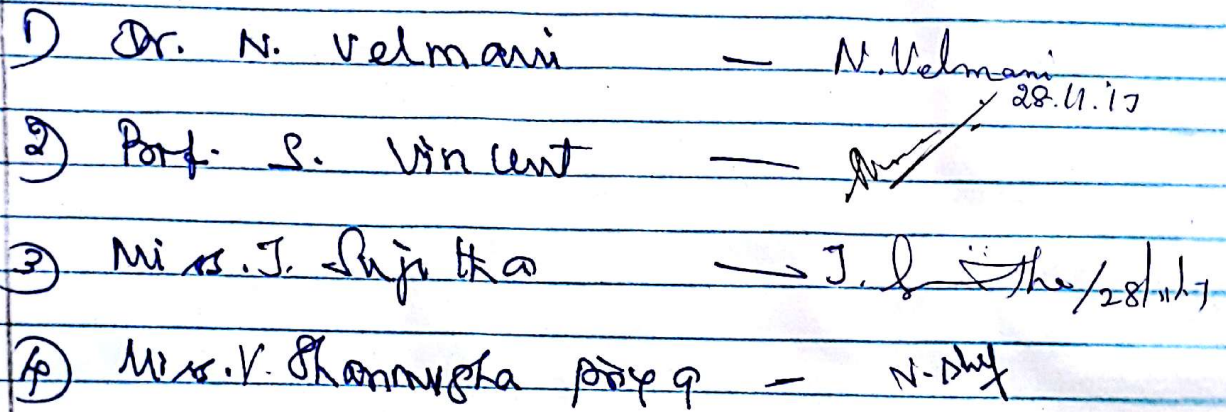 1) Dr. N. Velmani — N. Velmani
28.11.17
2) Porf. S. Vincent —
3) Miss. J. Sujitha — J. Sujitha/28/11/17
4) Miss. V. Shanmugha priya -